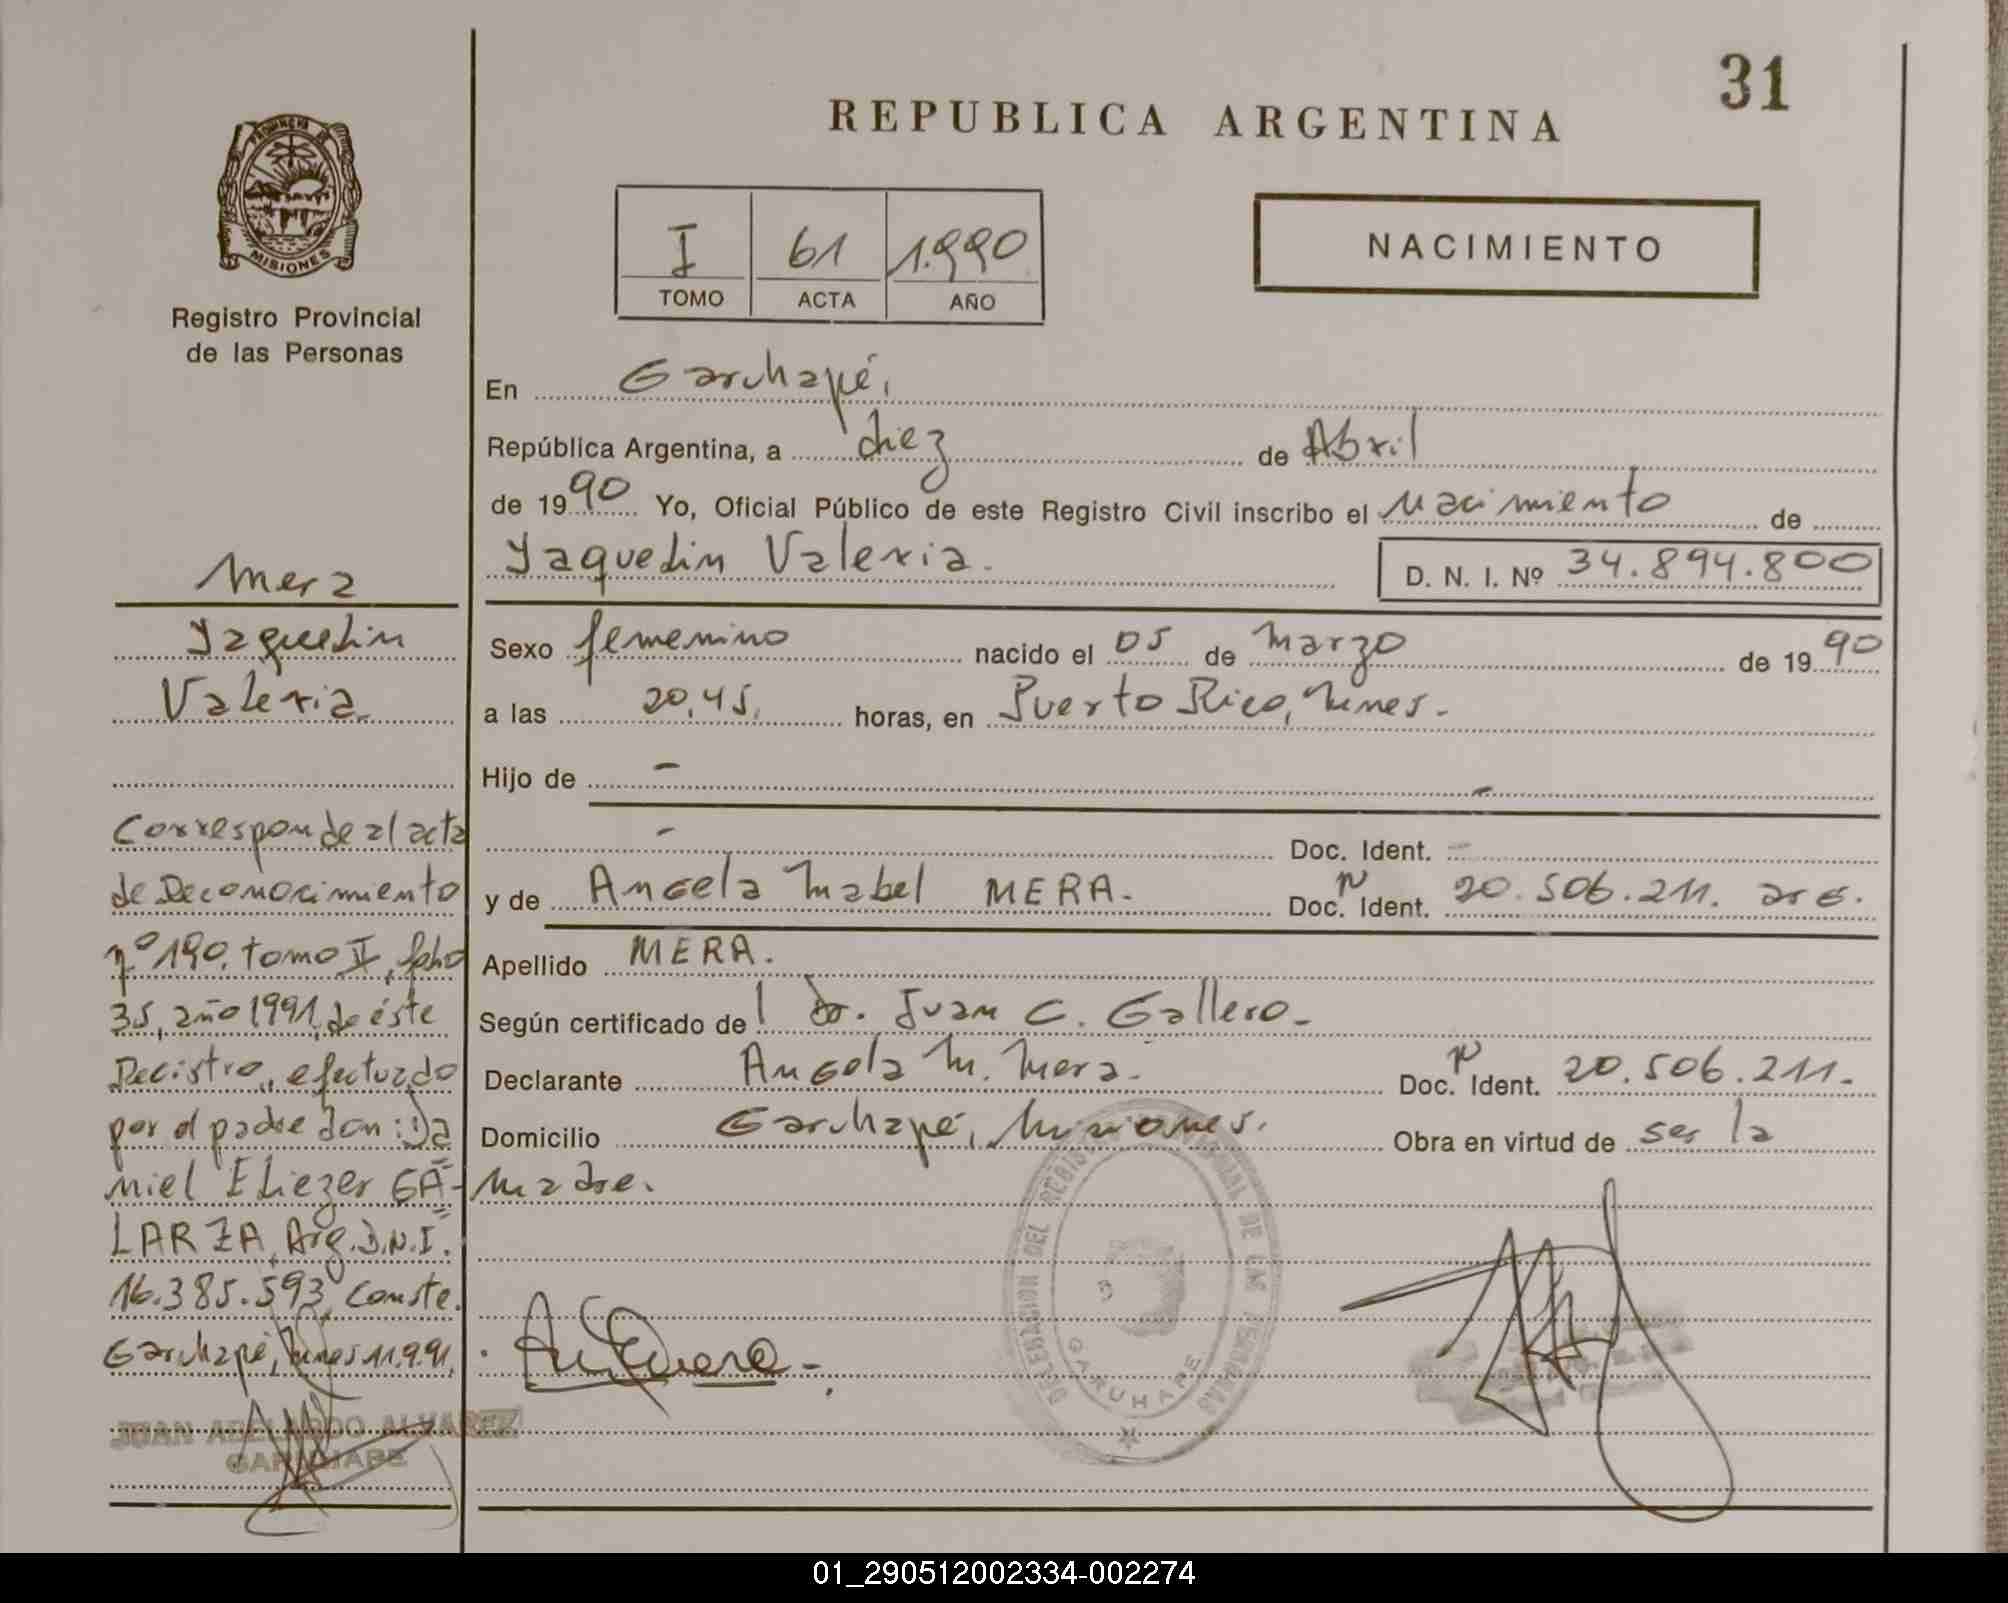 31
REPUBLICA ARGENTINA
PROVINCIA DE
MISIONES
Registro Provincial
de las Personas
I 61 1.990
TOMO ACTA AÑO
NACIMIENTO
En Garuhapé,
República Argentina, a diez de Abril
de 1990 Yo, Oficial Público de este Registro Civil inscribo el Nacimiento de
Yaquelin Valeria.
D. N. I. Nº 34.894.800
Sexo femenino nacido el 05 de Marzo de 1990
a las 20,45. horas, en Puerto Rico, Mnes.
Hijo de - -
- Doc. Ident. -
y de Angela Mabel MERA. Doc. N Ident. 20.506.211. arg.
Apellido MERA.
Según certificado de l Dr. Juan C. Gallero.
Declarante Angela M. Mera. Doc. N Ident. 20.506.211.
Domicilio Garuhapé, Misiones. Obra en virtud de ser la
madre.
Mera
Yaquelin
Valeria.
Corresponde al acta
de Reconocimiento
nº 190, tomo II, folio
35, año 1991, de éste
Registro, efectuado
por el padre don: Da
niel Eliezer GA-
LARZA, Arg. D.N.I.
16.385.593, Conste.
Garuhapé, Mnes 11.9.91.
JUAN ABELARDO ALVAREZ
GARUHAPE
DELEGACION DEL REGISTRO PROVINCIAL DE LAS PERSONAS
GARUHAPE
01_290512002334-002274